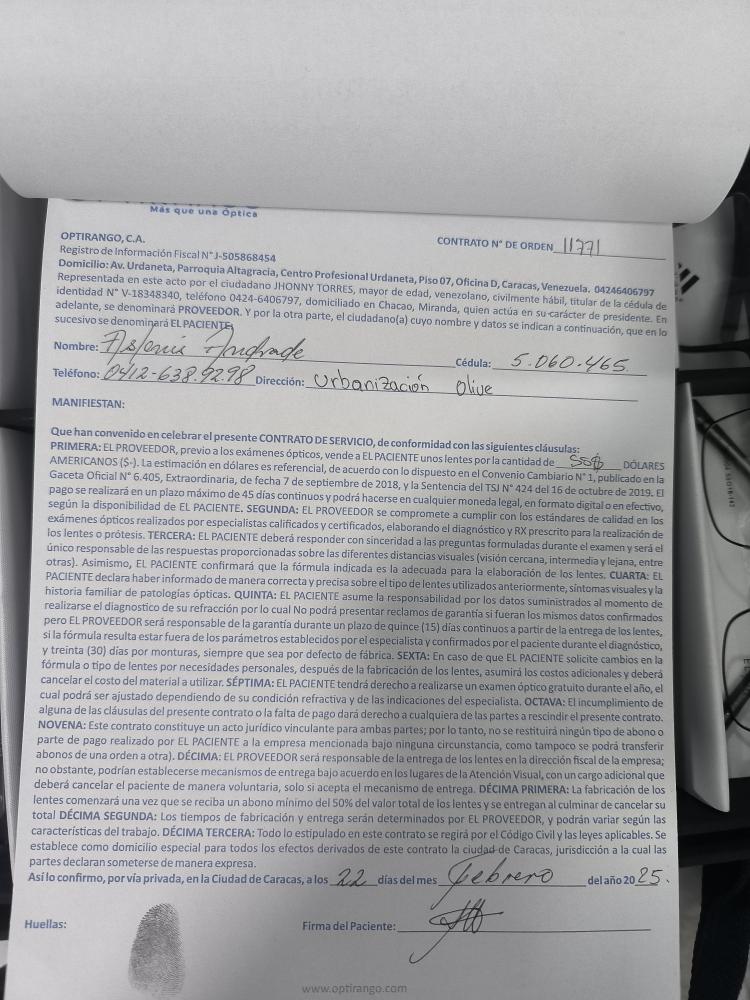 Más que una Óptica
OPTIRANGO, C.A.
CONTRATO N° DE ORDEN 11771
Registro de Información Fiscal N° J-505868454
Domicilio: Av. Urdaneta, Parroquia Altagracia, Centro Profesional Urdaneta, Piso 07, Oficina D, Caracas, Venezuela. 04246406797
Representada en este acto por el ciudadano JHONNY TORRES, mayor de edad, venezolano, civilmente hábil, titular de la cédula de
identidad N° V-18348340, teléfono 0424-6406797, domiciliado en Chacao, Miranda, quien actúa en su carácter de presidente. En
adelante, se denominará PROVEEDOR. Y por la otra parte, el ciudadano(a) cuyo nombre y datos se indican a continuación, que en lo
sucesivo se denominará EL PACIENTE
Nombre: Andrade
Cédula: 5.060.465.
Teléfono: 0412-638.92.98 Dirección: Urbanización Olive
MANIFIESTAN:
Que han convenido en celebrar el presente CONTRATO DE SERVICIO, de conformidad con las siguientes cláusulas:
PRIMERA: EL PROVEEDOR, previo a los exámenes ópticos, vende a EL PACIENTE unos lentes por la cantidad de DÓLARES
AMERICANOS ($-). La estimación en dólares es referencial, de acuerdo con lo dispuesto en el Convenio Cambiario N° 1, publicado en la
Gaceta Oficial N° 6.405, Extraordinaria, de fecha 7 de septiembre de 2018, y la Sentencia del TSJ N° 424 del 16 de octubre de 2019. El
pago se realizará en un plazo máximo de 45 días continuos y podrá hacerse en cualquier moneda legal, en formato digital o en efectivo,
según la disponibilidad de EL PACIENTE. SEGUNDA: EL PROVEEDOR se compromete a cumplir con los estándares de calidad en los
exámenes ópticos realizados por especialistas calificados y certificados, elaborando el diagnóstico y RX prescrito para la realización de
los lentes o prótesis. TERCERA: EL PACIENTE deberá responder con sinceridad a las preguntas formuladas durante el examen y será el
único responsable de las respuestas proporcionadas sobre las diferentes distancias visuales (visión cercana, intermedia y lejana, entre
otras). Asimismo, EL PACIENTE confirmará que la fórmula indicada es la adecuada para la elaboración de los lentes. CUARTA: EL
PACIENTE declara haber informado de manera correcta y precisa sobre el tipo de lentes utilizados anteriormente, síntomas visuales y la
historia familiar de patologías ópticas. QUINTA: EL PACIENTE asume la responsabilidad por los datos suministrados al momento de
realizarse el diagnostico de su refracción por lo cual No podrá presentar reclamos de garantía si fueran los mismos datos confirmados
pero EL PROVEEDOR será responsable de la garantía durante un plazo de quince (15) días continuos a partir de la entrega de los lentes,
si la fórmula resulta estar fuera de los parámetros establecidos por el especialista y confirmados por el paciente durante el diagnóstico,
y treinta (30) días por monturas, siempre que sea por defecto de fábrica. SEXTA: En caso de que EL PACIENTE solicite cambios en la
fórmula o tipo de lentes por necesidades personales, después de la fabricación de los lentes, asumirá los costos adicionales y deberá
cancelar el costo del material a utilizar. SÉPTIMA: EL PACIENTE tendrá derecho a realizarse un examen óptico gratuito durante el año, el
cual podrá ser ajustado dependiendo de su condición refractiva y de las indicaciones del especialista. OCTAVA: El incumplimiento de
alguna de las cláusulas del presente contrato o la falta de pago dará derecho a cualquiera de las partes a rescindir el presente contrato.
NOVENA: Este contrato constituye un acto jurídico vinculante para ambas partes; por lo tanto, no se restituirá ningún tipo de abono o
parte de pago realizado por EL PACIENTE a la empresa mencionada bajo ninguna circunstancia, como tampoco se podrá transferir
abonos de una orden a otra). DÉCIMA: EL PROVEEDOR será responsable de la entrega de los lentes en la dirección fiscal de la empresa;
no obstante, podrían establecerse mecanismos de entrega bajo acuerdo en los lugares de la Atención Visual, con un cargo adicional que
deberá cancelar el paciente de manera voluntaria, solo si acepta el mecanismo de entrega. DÉCIMA PRIMERA: La fabricación de los
lentes comenzará una vez que se reciba un abono mínimo del 50% del valor total de los lentes y se entregan al culminar de cancelar su
total DÉCIMA SEGUNDA: Los tiempos de fabricación y entrega serán determinados por EL PROVEEDOR, y podrán variar según las
características del trabajo. DÉCIMA TERCERA: Todo lo estipulado en este contrato se regirá por el Código Civil y las leyes aplicables. Se
establece como domicilio especial para todos los efectos derivados de este contrato la ciudad de Caracas, jurisdicción a la cual las
partes declaran someterse de manera expresa.
Así lo confirmo, por vía privada, en la Ciudad de Caracas, a los 22 días del mes Febrero del año 2025.
Huellas:
Firma del Paciente:
www.optirango.com